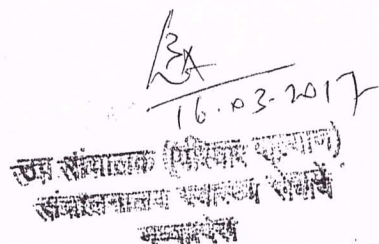 16.03.2017
उप संचालक (परिवार कल्याण)
संचालनालय स्वास्थ्य सेवायें
मध्यप्रदेश